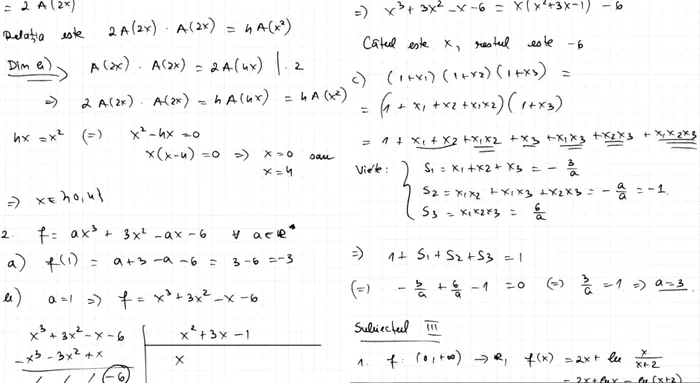 = 2 A(2x)
Relația este 2A(2x) · A(2x) = 4A(x²)
Din b) A(2x) · A(2x) = 2A(4x) | · 2
=> 2A(2x) · A(2x) = 4A(4x) = 4A(x²)
4x = x² (=) x² - 4x = 0
x(x-4) = 0 => x = 0 sau
x = 4
=> x ∈ {0,4}
2. f = ax³ + 3x² - ax - 6 ∀ a ∈ ℝ*
a) f(1) = a + 3 - a - 6 = 3 - 6 = -3
b) a = 1 => f = x³ + 3x² - x - 6
x³ + 3x² - x - 6 | x² + 3x - 1
-x³ - 3x² + x | x
/ / / (-6)
=> x³ + 3x² - x - 6 = x(x² + 3x - 1) - 6
Câtul este x, restul este -6
c) (1+x1)(1+x2)(1+x3) =
= (1 + x1 + x2 + x1x2)(1+x3)
= 1 + x1 + x2 + x1x2 + x3 + x1x3 + x2x3 + x1x2x3
Viète: S1 = x1 + x2 + x3 = - 3/a
S2 = x1x2 + x1x3 + x2x3 = - a/a = -1
S3 = x1x2x3 = 6/a
=> 1 + S1 + S2 + S3 = 1
(=) - 3/a + 6/a - 1 = 0 (=) 3/a = 1 => a = 3.
Subiectul III
1. f: (0, +∞) → ℝ, f(x) = 2x + ln x/(x+2)
= 2x + ln x - ln(x+2)